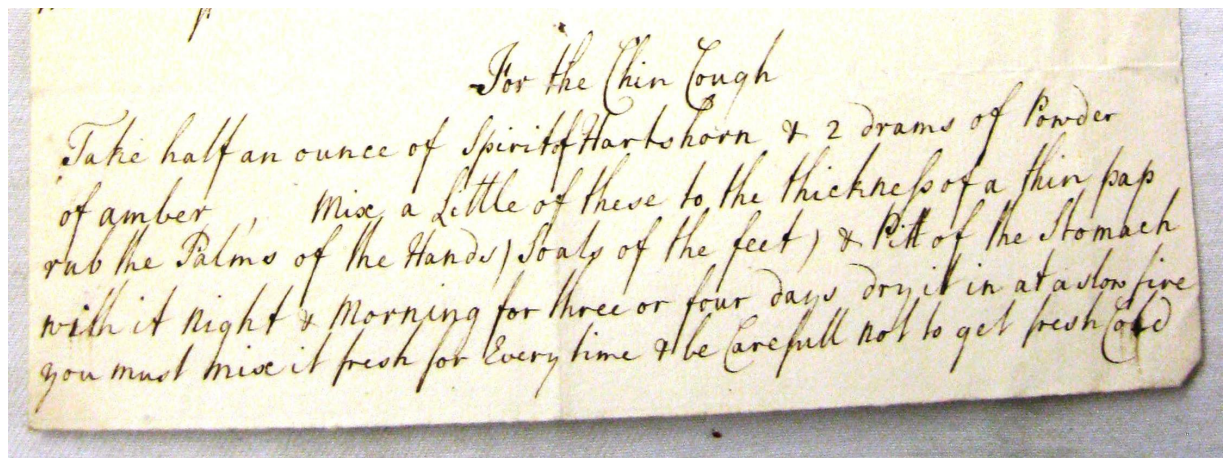 For the Chin Cough
Take half an ounce of Spirit of Hartshorn & 2 drams of Powder
of amber , Mix a Little of these to the thickneſs of a thin pap
rub the Palms of the Hands, Soals of the feet, & Pitt of the Stomach
with it Night & Morning for three or four days dry it in at a slow fire
you must mix it fresh for Every time & be Carefull not to get fresh Cold